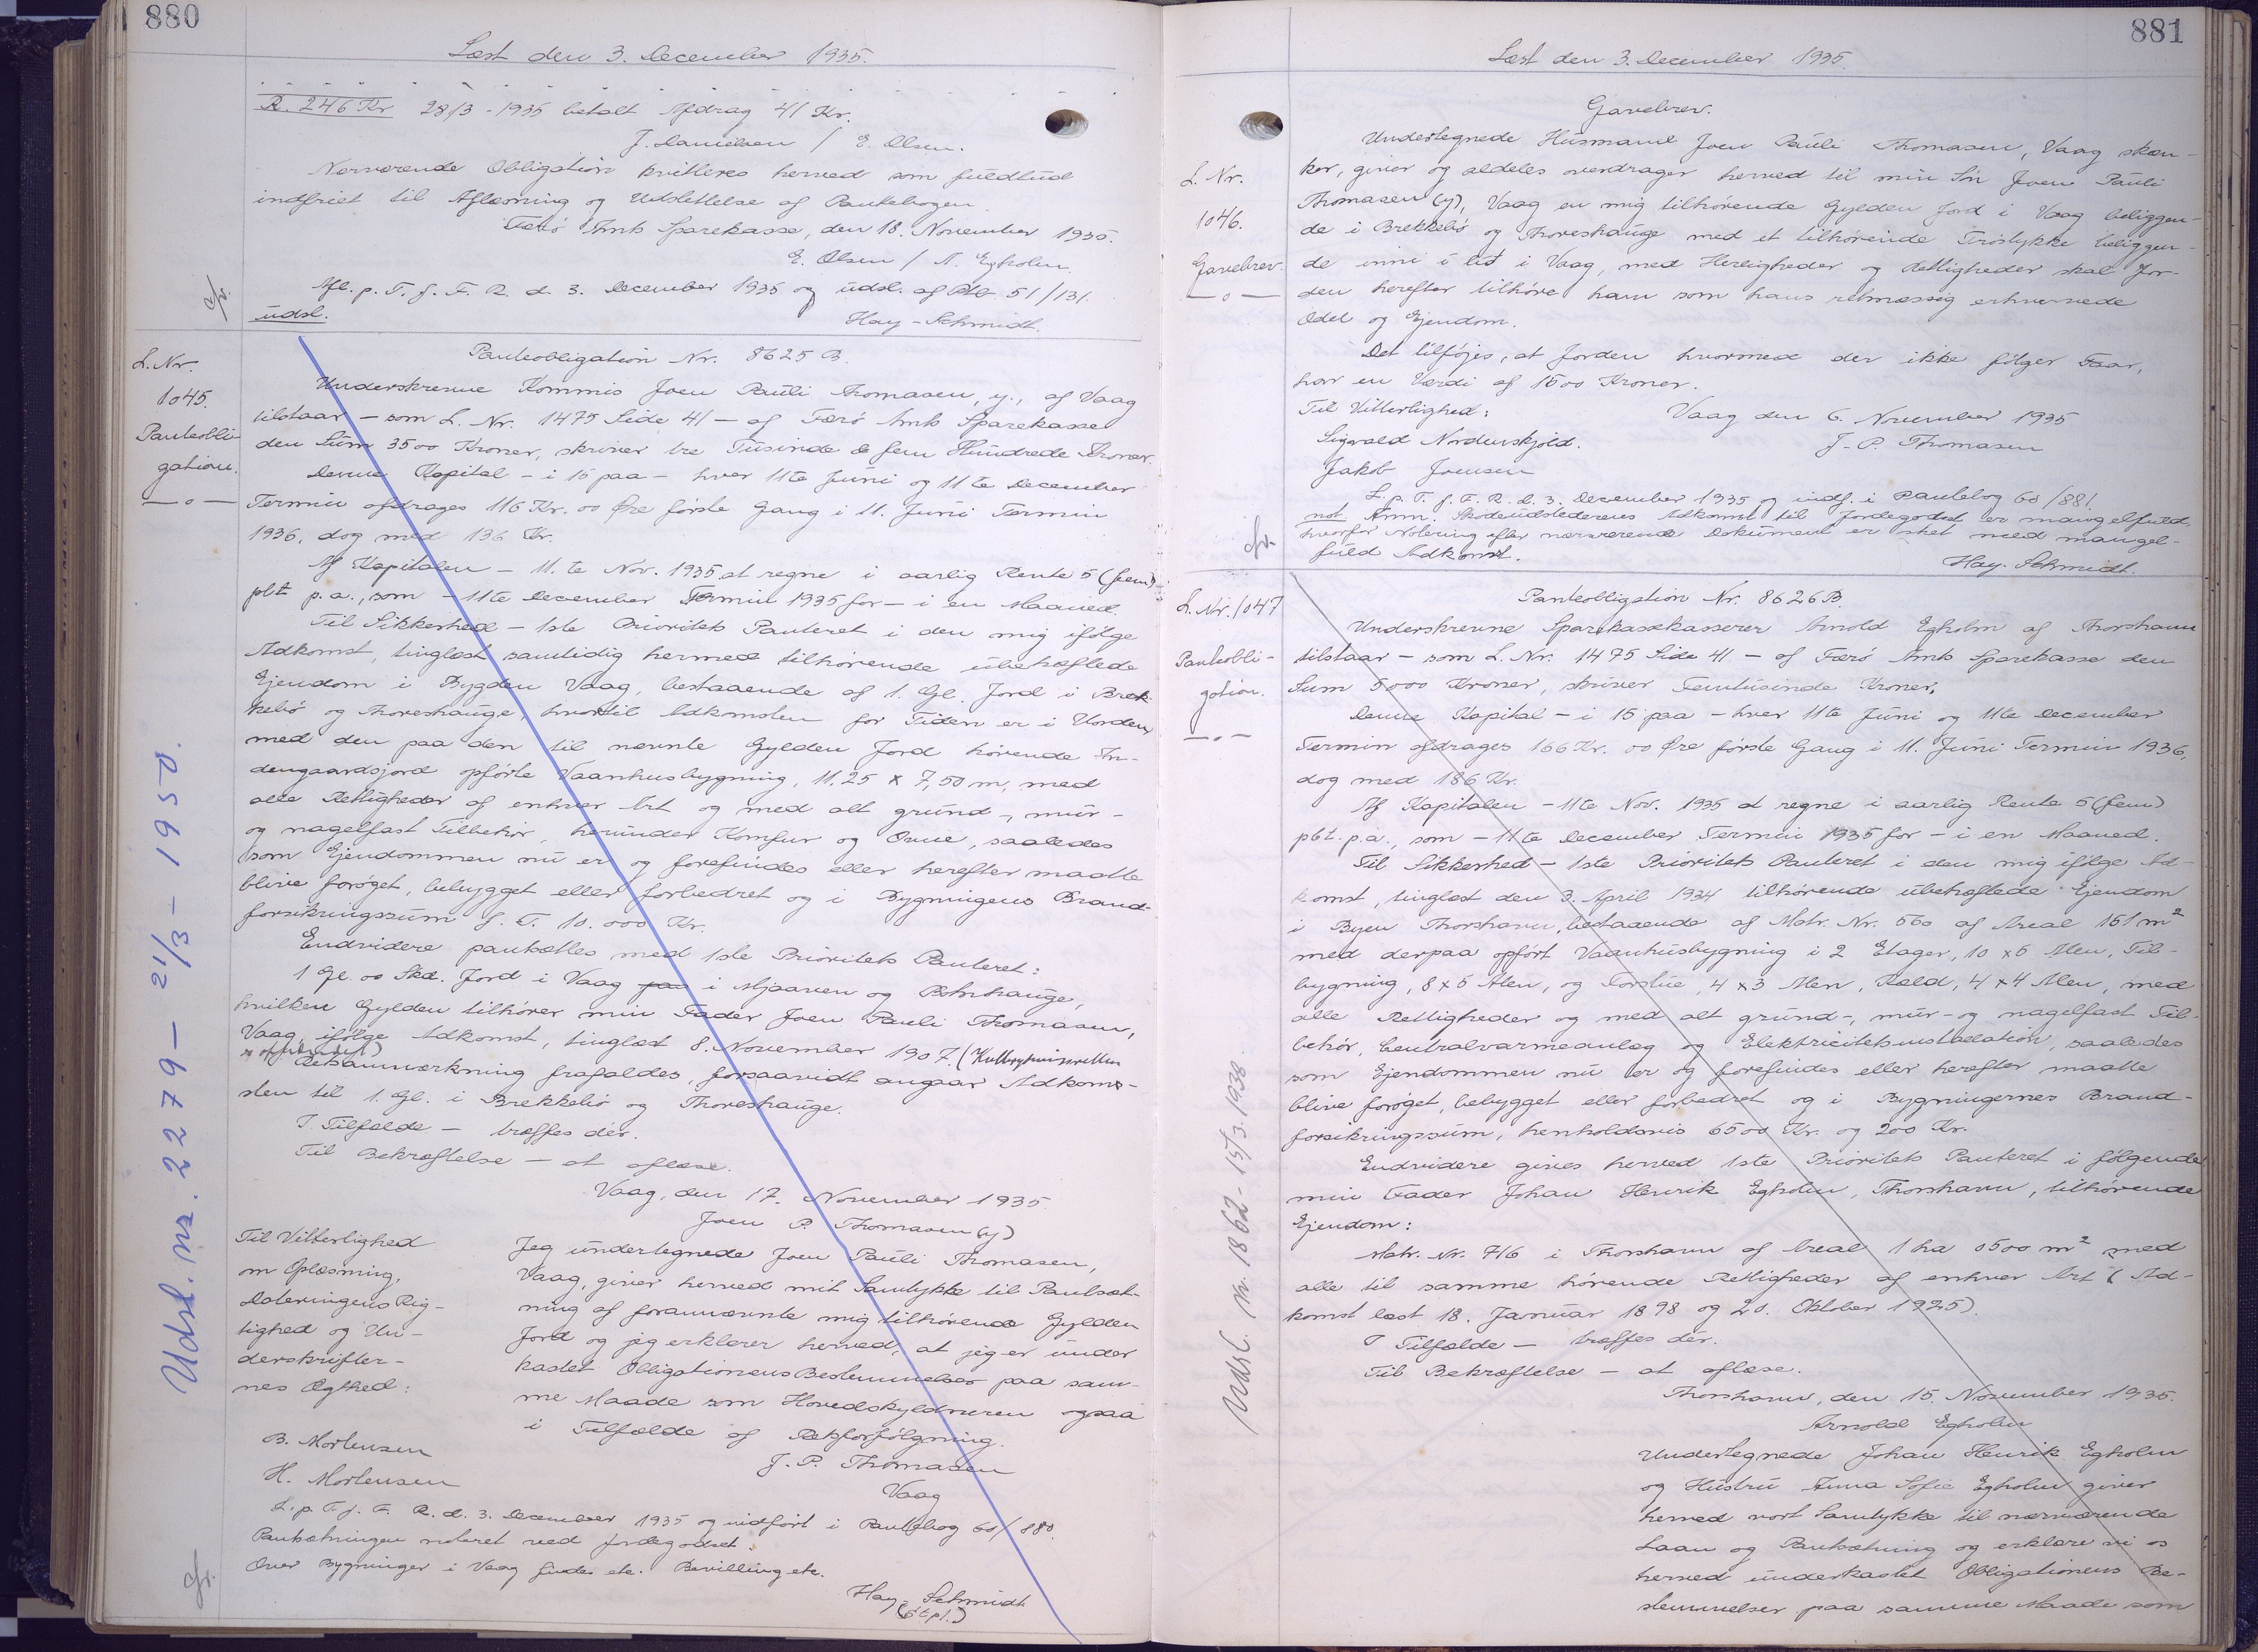 880
Læst den 3. December 1935.
R. 246 Kr 28/3 - 1935 betalt Afdrag 41 Kr.
J. Danielsen / E. Olsen.
Nærværende Obligation kvitteres herved som fuldtud
indfriet til Aflæsning og Udslettelse af Pantebogen.
Færø Amts Sparekasse, den 18. November 1935.
E. Olsen / A. Egholm.
Afl. p. T. f. F. R. d. 3. December 1935 og udsl. af Ptb 51/131.
udsl.
Hay-Schmidt.
L. Nr.
1045.
Panteobli-
gation.
—o—
Panteobligation Nr. 8625 B.
Underskrevne Kommis Joen Pauli Thomasen, y., af Vaag
tilstaar — som L. Nr. 1475 Side 41 — af Færø Amts Sparekasse
den Sum 3500 Kroner, skriver tre Tusinde & fem Hundrede Kroner.
Denne Kapital — i 15 paa — hver 11te Juni og 11te December
Termin afdrages 116 Kr. 00 Øre første Gang i 11. Juni Termin
1936, dog med 136 Kr.
Af Kapitalen — 11.te Nov. 1935 at regne i aarlig Rente 5 (fem)
pCt p.a., som — 11te December Termin 1935 for — i en Maaned.
Til Sikkerhed — 1ste Prioritets Panteret i den mig ifølge
Adkomst, tinglæst samtidig hermed tilhørende ubehæftede
Ejendom i Bygden Vaag, bestaaende af 1. Gl. Jord i Brek-
kebø og Thoreshauge, hvortil Adkomsten for Tiden er i Uorden,
med den paa den til nævnte Gylden Jord hørende In-
dengaardsjord opførte Vaanhusbygning, 11,25 x 7,50 m, med
alle Rettigheder af enhver Art og med alt grund-, mur-
og nagelfast Tilbehør, herunder Komfur og Ovne, saaledes
som Ejendommen nu er og forefindes eller herefter maatte
blive forøget, bebygget eller forbedret og i Bygningens Brand-
forsikringssum f. T. 10.000 Kr.
Endvidere pantsættes med 1ste Prioritets Panteret:
1 Gl. 00 Skd. Jord i Vaag paa i Mjaaven og Botnhauge,
hvilken Gylden tilhører min Fader Joen Pauli Thomasen,
Vaag ifølge Adkomst, tinglæst 8. November 1907. (
Retsanmærkning frafaldes, forsaavidt angaar Adkoms-
sten til 1. Gl. i Brekkebø og Thoreshauge.
I Tilfælde — træffes dér.
Til Bekræftelse — at aflæse.
Vaag, den 17. November 1935.
Joen P. Thomasen (y)
Til Vitterlighed
om Oplæsning,
Dateringens Rig-
tighed og Un-
derskrifter-
nes Ægthed:
B. Mortensen
H. Mortensen
Jeg undertegnede Joen Pauli Thomasen,
Vaag, giver herved mit Samtykke til Pantsæt-
ning af forannævnte mig tilhørende Gylden
Jord og jeg erklærer herved, at jeg er under
kastet Obligationens Bestemmelser paa sam-
me Maade som Hovedskyldneren ogsaa
i Tilfælde af Retsforfølgning.
J. P. Thomasen
Vaag
L. p. T. f. F. R. d. 3. December 1935 og indført i Pantebog 60/880.
Pantsætningen noteret ved Jordegodset.
Over Bygninger i Vaag findes etc. Bevilling etc.
Hay-Schmidt
(stpl.)
Udsl. nr. 2279 — 21/3 - 1950.
881
Læst den 3. December 1935.
L. Nr.
1046.
Gavebrev.
—o—
Gavebrev.
Undertegnede Husmand Joen Pauli Thomasen, Vaag skæn-
ker, giver og aldeles overdrager herved til min Søn Joen Pauli
Thomasen (y), Vaag en mig tilhørende Gylden Jord i Vaag beliggen-
de i Brekkebø og Thoreshauge med et tilhørende Trøstykke beliggen-
de inni í lið i Vaag, med Herligheder og Rettigheder skal Jor-
den herefter tilhøre ham som hans retmæssig erhvervede
Odel og Ejendom.
Det tilføjes, at Jorden hvormed der ikke følger Faar,
har en Værdi af 1500 Kroner.
Til Vitterlighed:
Vaag den 6. November 1935
Sigvald Nordenskjold.
J. P. Thomasen
Jakob Joensen
L. p. T. f. F. R. d. 3. December 1935 og indf. i Pantebog 60/881.
not. Anm. Skødeudstederens Adkomst til Jordegodset er mangelfuld,
hvorfor Notering efter nærværende Dokument er sket med mangel-
fuld Adkomst.
Hay-Schmidt.
L. Nr. 1047
Panteobli-
gation.
—o—
Panteobligation Nr. 8626 B.
Underskrevne Sparekassekasserer Arnold Egholm af Thorshavn
tilstaar — som L. Nr. 1475 Side 41 — af Færø Amts Sparekasse den
Sum 5000 Kroner, skriver Femtusinde Kroner.
Denne Kapital — i 15 paa — hver 11te Juni og 11te December
Termin afdrages 166 Kr. 00 Øre første Gang i 11. Juni Termin 1936,
dog med 186 Kr.
Af Kapitalen — 11te Nov. 1935 at regne i aarlig Rente 5 (fem)
pCt. p.a., som — 11te December Termin 1935 for — i en Maaned.
Til Sikkerhed — 1ste Prioritets Panteret i den mig ifølge Ad-
komst, tinglæst den 3. April 1934 tilhørende ubehæftede Ejendom
i Byen Thorshavn, bestaaende af Matr. Nr. 560 af Areal 151 m²
med derpaa opført Vaanhusbygning i 2 Etager, 10 x 6 Alen, Til-
bygning, 8 x 5 Alen, og Forstue, 4 x 3 Alen, Rald, 4 x 4 Alen, med
alle Rettigheder og med alt grund-, mur- og nagelfast Til-
behør, Centralvarmeanlæg og Elektricitetsinstallation, saaledes
som Ejendommen nu er og forefindes eller herefter maatte
blive forøget, bebygget eller forbedret og i Bygningernes Brand-
forsikringssum, henholdsvis 6500 Kr. og 200 Kr.
Endvidere gives herved 1ste Prioritets Panteret i følgende
min Fader Johan Henrik Egholm, Thorshavn, tilhørende
Ejendom:
Matr. Nr. 716 i Thorshavn af Areal 1 ha 0500 m² med
alle til samme hørende Rettigheder af enhver Art (Ad-
komst læst 18. Januar 1898 og 20. Oktober 1925).
I Tilfælde — træffes dér.
Til Bekræftelse — at aflæse.
Thorshavn, den 15. November 1935.
Arnold Egholm
Undertegnede Johan Henrik Egholm
og Hustru Anna Sofie Egholm giver
herved vort Samtykke til nærværende
Laan og Pantsætning og erklære vi os
herved underkastet Obligationens Be-
stemmelser paa samme Maade som
Udsl. nr. 1862 - 15/3. 1938